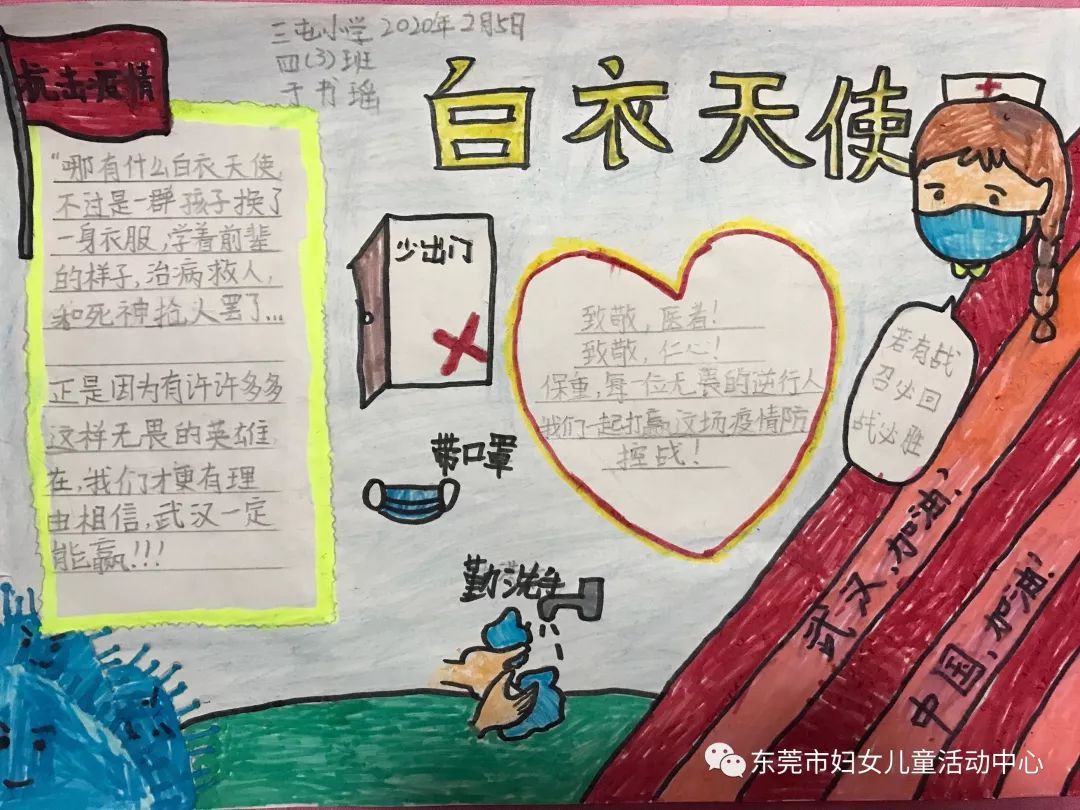 三屯小学 2020年2月5日
四(3)班
于书瑶
抗击疫情
白衣天使
"哪有什么白衣天使,
不过是一群孩子换了
一身衣服,学着前辈
的样子,治病救人,
和死神抢人罢了...
正是因为有许许多多
这样无畏的英雄
在,我们才更有理
由相信,武汉一定
能赢!!!
少出门
带口罩
勤洗手
致敬,医者!
致敬,仁心!
保重,每一位无畏的逆行人
我们一起打赢这场疫情防
控战!
若有战
召必回
战必胜
武汉,加油!
中国,加油!
东莞市妇女儿童活动中心